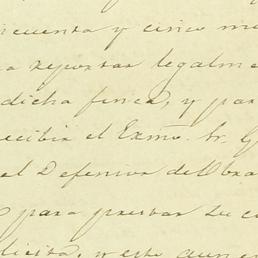 cuenta y cinco m
a reportar legalme
dicha finca, y par
recibir el Exmo. Sr. G
el Defensor de Obra
para prestar su c
licita, y este aun e